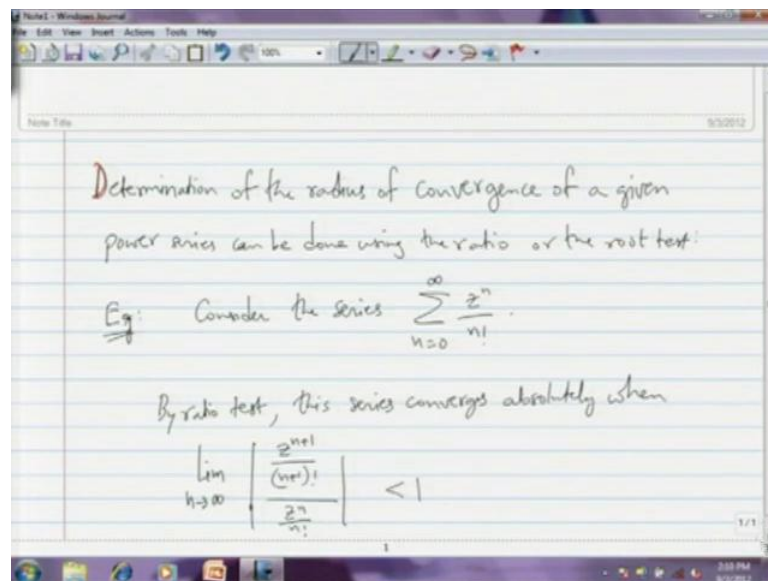 Note1 - Windows Journal
File Edit View Insert Actions Tools Help
100%
Note Title
9/3/2012
Determination of the radius of convergence of a given
power series can be done using the ratio or the root test:
Eg: Consider the series ∑_{n=0}^{∞} z^n / n! .
By ratio test, this series converges absolutely when
lim_{n→∞} | (z^{n+1} / (n+1)!) / (z^n / n!) | < 1
1/1
1
2:53 PM
9/3/2012